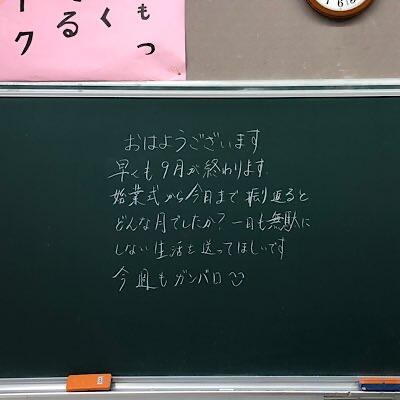 もっ
く
る
ーク
おはようございます
早くも9月が終わります.
始業式から今日まで振り返ると
どんな月でしたか?一日も無駄に
しない生活を送ってほしいです
今週もガンバロ